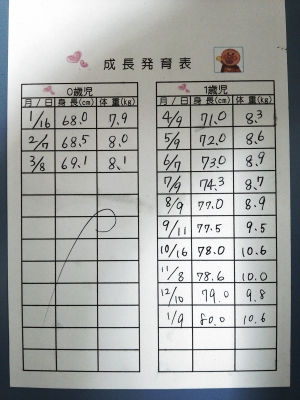 成長発育表
0歳児
月/日 身長(cm) 体重(kg)
1/16 68.0 7.9
2/7 68.5 8.0
3/8 69.1 8.1
1歳児
月/日 身長(cm) 体重(kg)
4/9 71.0 8.3
5/9 72.0 8.6
6/7 73.0 8.9
7/9 74.3 8.7
8/9 77.0 8.9
9/11 77.5 9.5
10/16 78.0 10.6
11/8 78.6 10.0
12/10 79.0 9.8
1/9 80.0 10.6